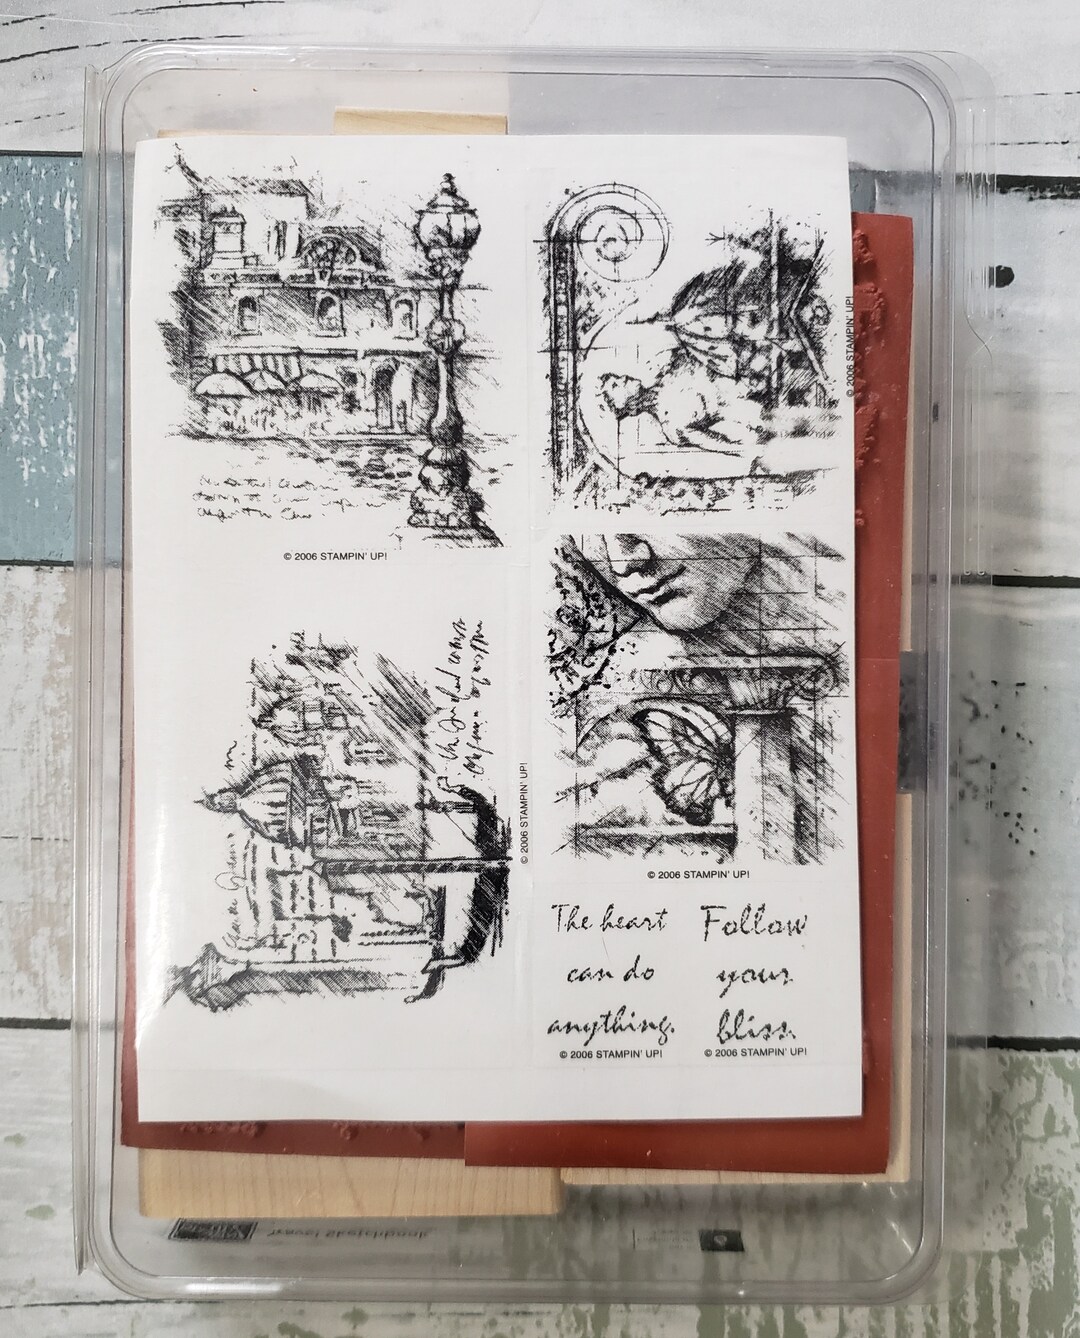 © 2006 STAMPIN' UP!
© 2006 STAMPIN' UP!
© 2006 STAMPIN' UP!
© 2006 STAMPIN' UP!
The heart
can do
anything.
© 2006 STAMPIN' UP!
Follow
your
bliss.
© 2006 STAMPIN' UP!
Travel Sketchbook